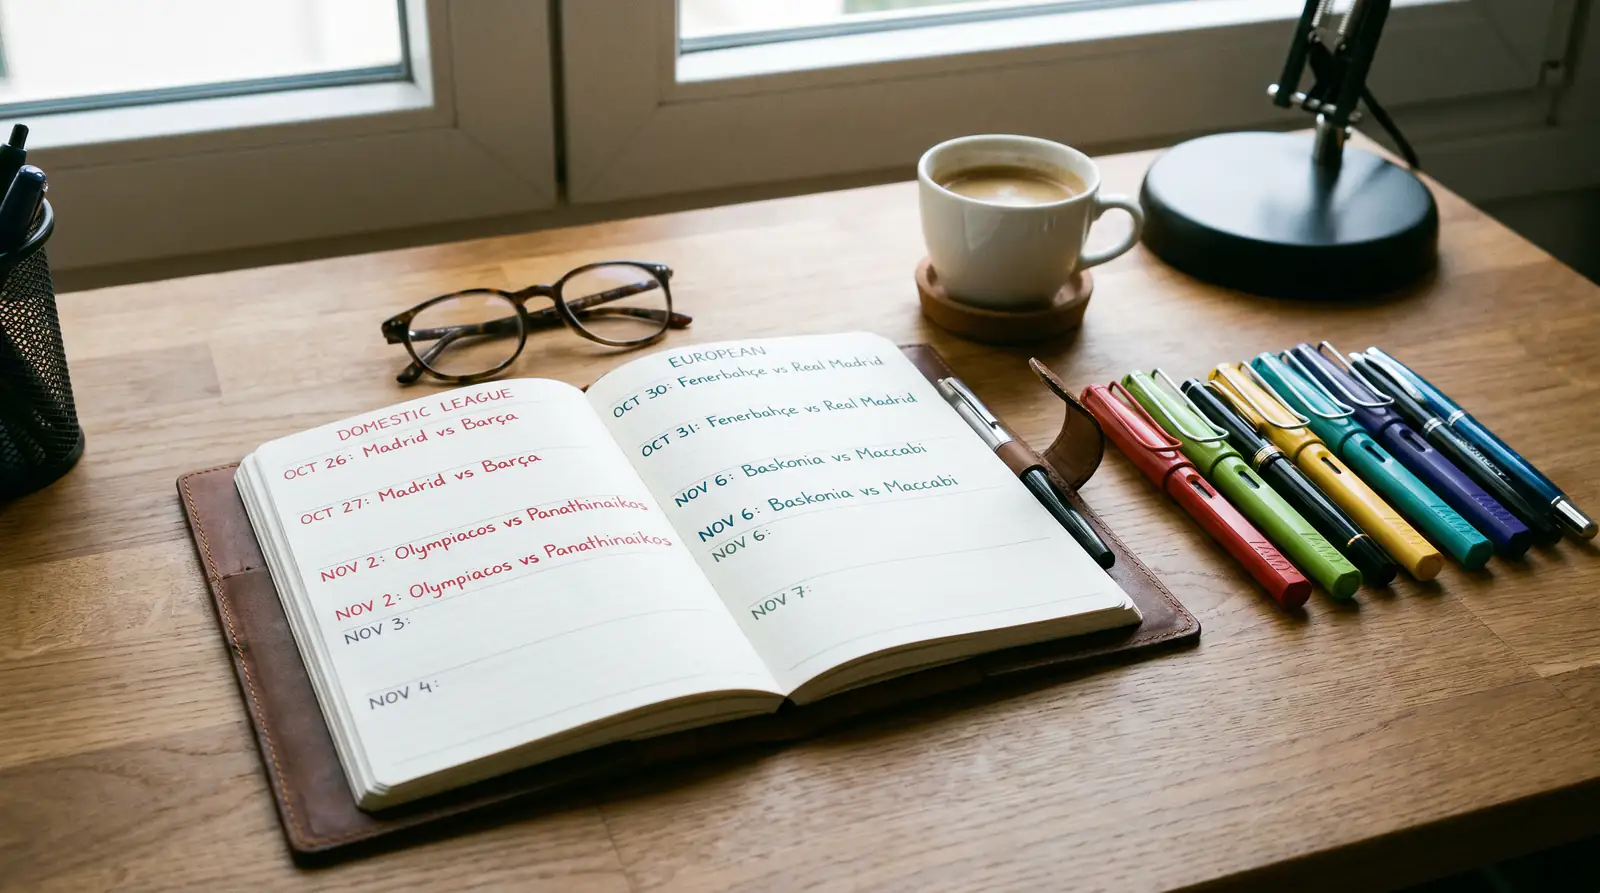 DOMESTIC LEAGUE
OCT 26: Madrid vs Barça
OCT 27: Madrid vs Barça
NOV 2: Olympiacos vs Panathinaikos
NOV 2: Olympiacos vs Panathinaikos
NOV 3:
NOV 4:
EUROPEAN
OCT 30: Fenerbahçe vs Real Madrid
OCT 31: Fenerbahçe vs Real Madrid
NOV 6: Baskonia vs Maccabi
NOV 6: Baskonia vs Maccabi
NOV 6:
NOV 7: